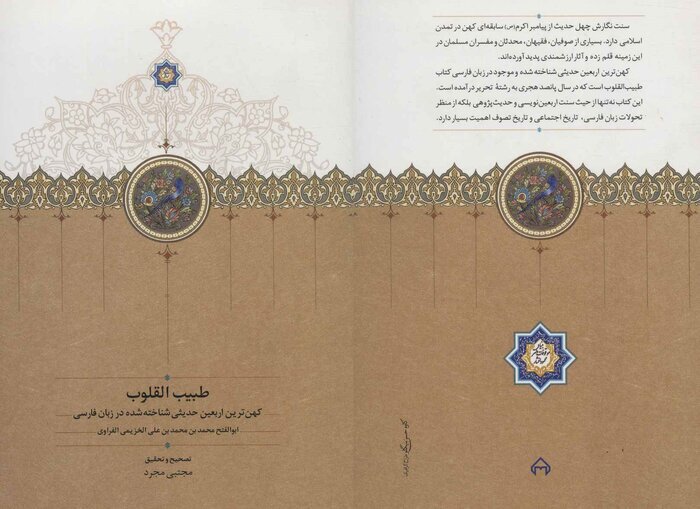 سنت نگارش چهل حدیث از پیامبر اکرم(ص) سابقه‌ای کهن در تمدن
اسلامی دارد. بسیاری از صوفیان، فقیهان، محدثان و مفسران مسلمان در
این زمینه قلم زده و آثار ارزشمندی پدید آورده‌اند.
کهن‌ترین اربعین حدیثی شناخته شده و موجود در زبان فارسی کتاب
طبیب‌القلوب است که در سال پانصد هجری به رشتهٔ تحریر درآمده است.
این کتاب نه‌تنها از حیث سنت اربعین‌نویسی و حدیث‌پژوهی بلکه از منظر
تحولات زبان فارسی، تاریخ اجتماعی و تاریخ تصوف اهمیت بسیار دارد.
طبیب القلوب
کهن‌ترین اربعین حدیثی شناخته شده در زبان فارسی
ابوالفتح محمد بن محمد بن علی الخزیمی الفراوی
تصحیح و تحقیق
مجتبی مجرد